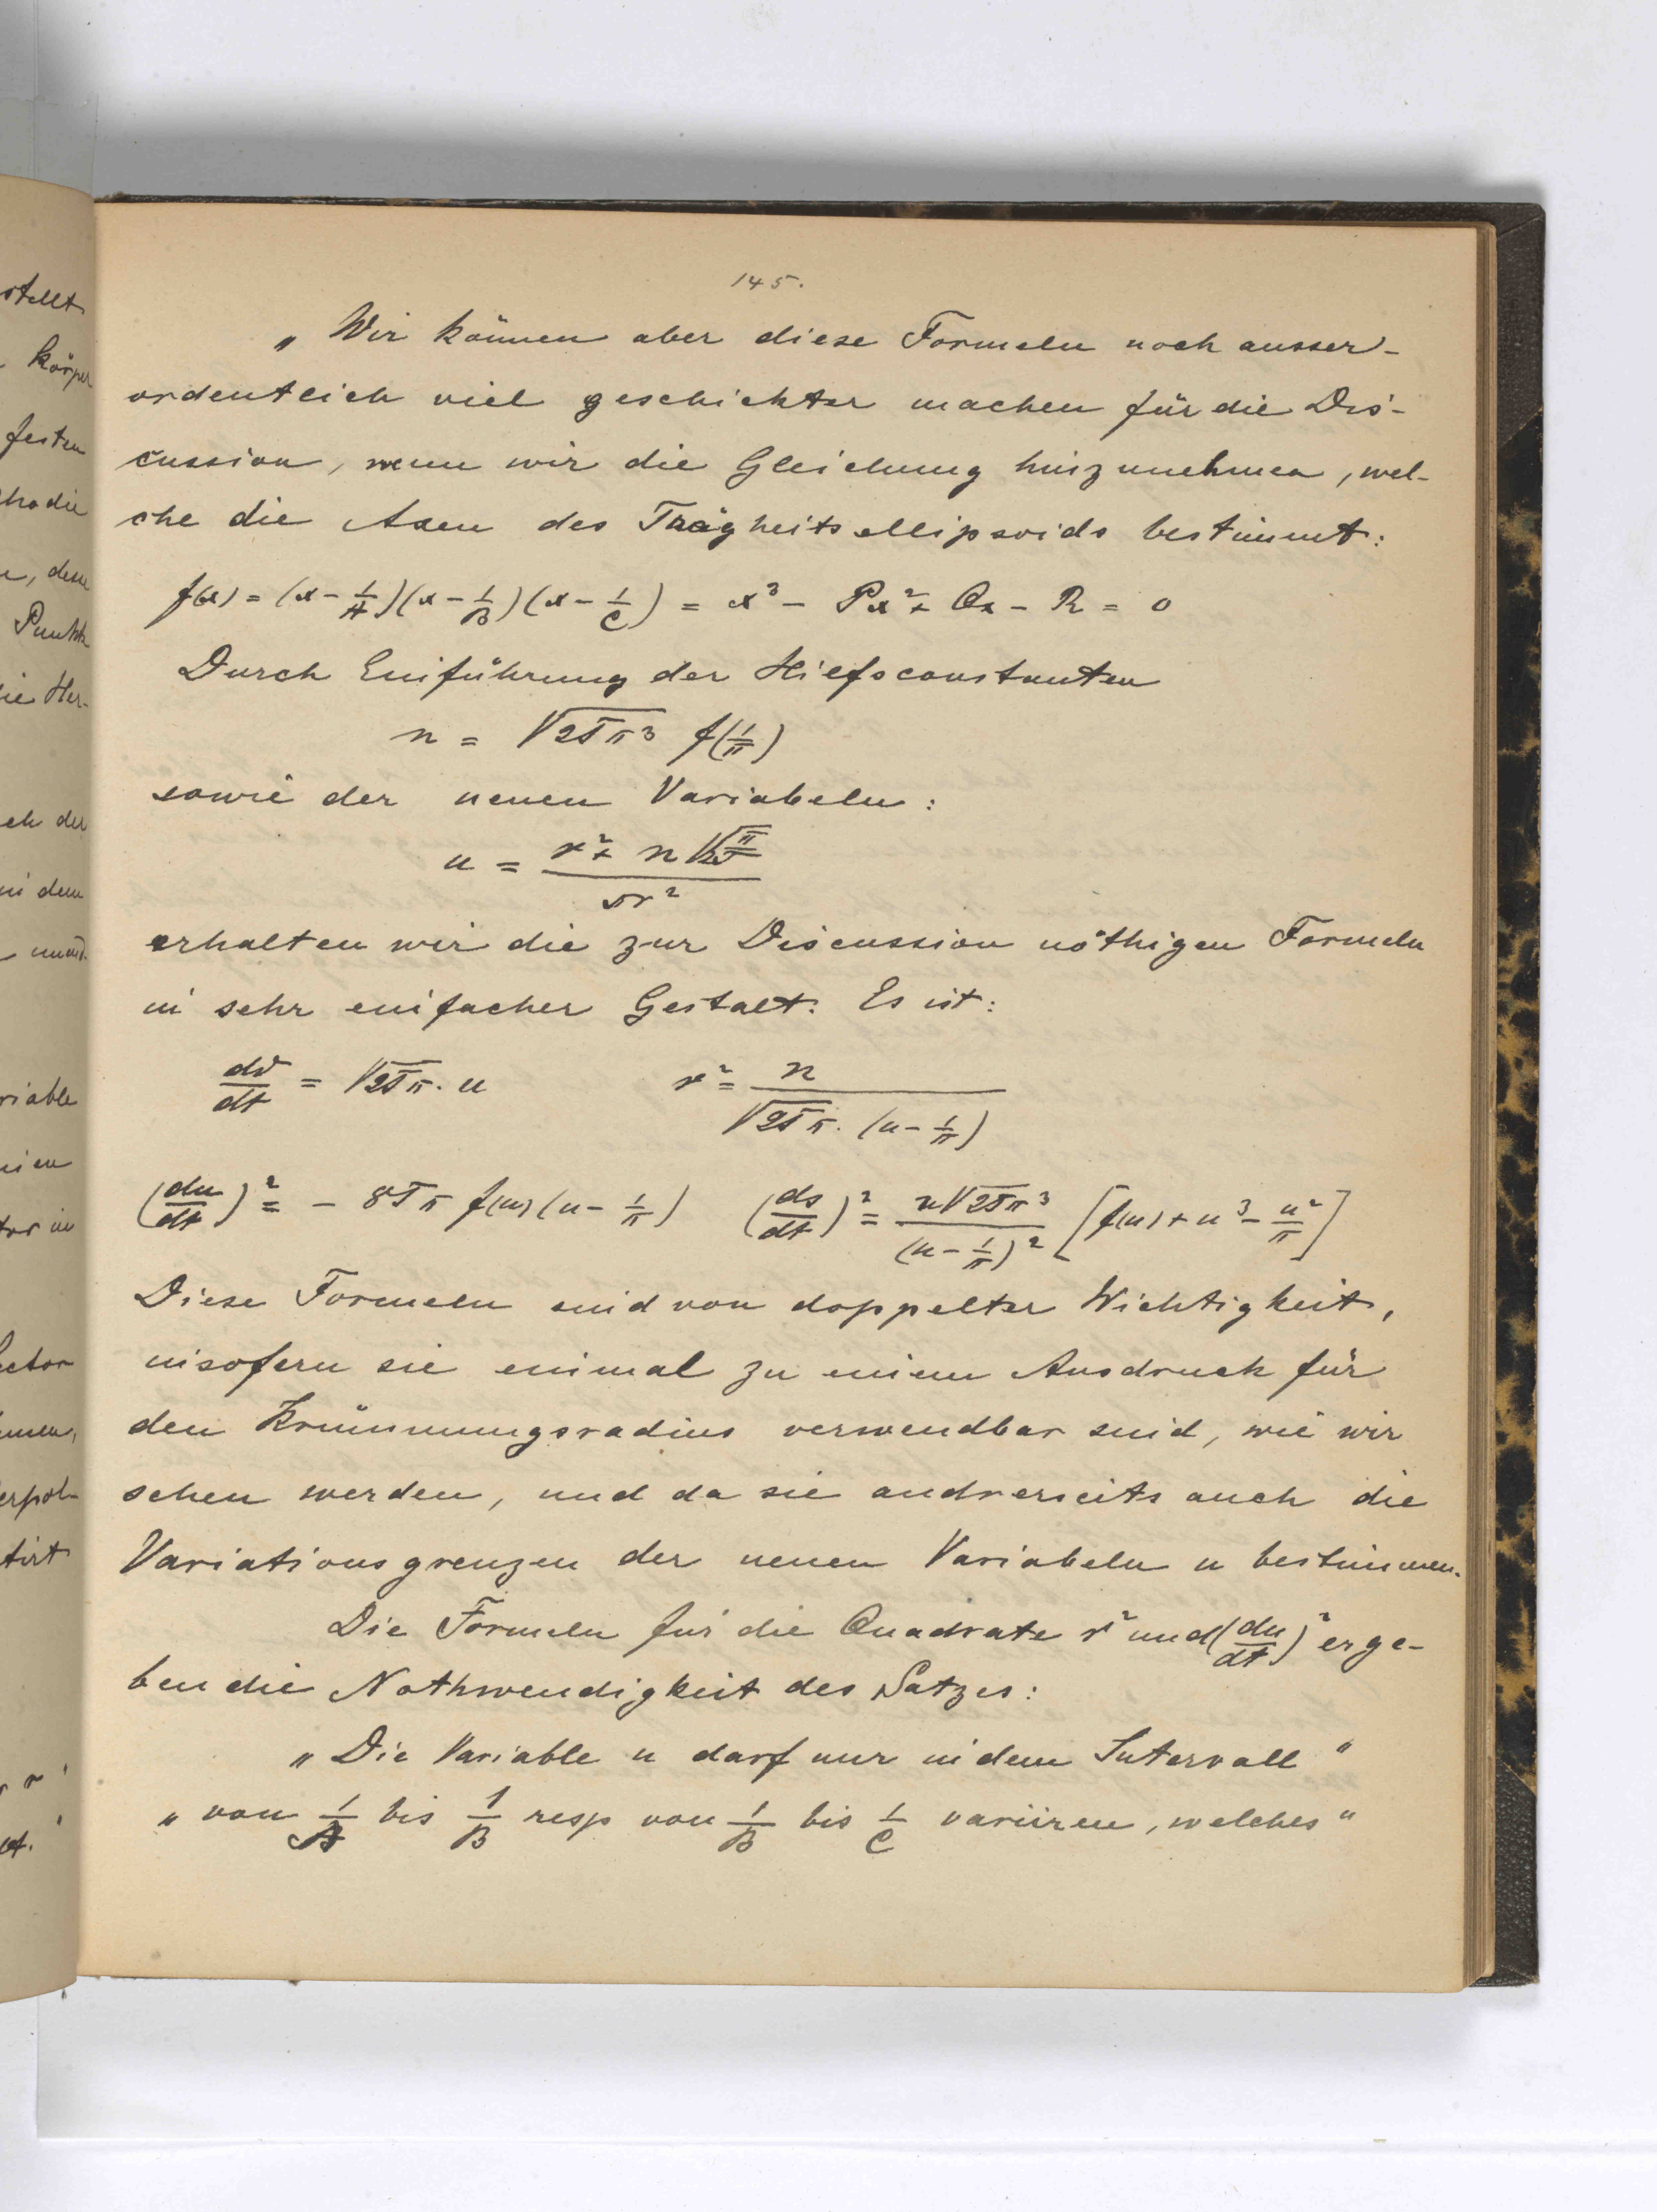 145.
„ Wir können aber diese Formeln noch ausser-
ordentlich viel geschickter machen für die Dis-
cussion, wenn wir die Gleichung hinzunehmen, wel-
che die Axen des Trägheitsellipsoids bestimmt:
f(x) = (x - 1/A)(x - 1/B)(x - 1/C) = x³ - Px² + Qx - R = 0
Durch Einführung der Hilfsconstanten
n = √2Tπ³ f(1/π)
sowie der neuen Variabeln:
u = (r² + n√(π/2T)) / πr²
erhalten wir die zur Discussion nöthigen Formeln
in sehr einfacher Gestalt: Es ist:
dϑ/dt = √2Tπ · u r² = n / (√2Tπ · (u - 1/π))
(du/dt)² = - 8Tπ f(u) (u - 1/π) (ds/dt)² = n√2Tπ³ / (u - 1/π)² [f(u) + u³ - u²/π]
Diese Formeln sind von doppelter Wichtigkeit,
insofern sie einmal zu einem Ausdruck für
den Krümmungsradius verwendbar sind, wie wir
sehen werden, und da sie andrerseits auch die
Variationsgrenzen der neuen Variabeln u bestimmen.
Die Formeln für die Quadrate r² und (du/dt)² erge-
ben die Nothwendigkeit des Satzes:
„ Die Variable u darf nur in dem Intervall “
„ von 1/A bis 1/B resp von 1/B bis 1/C variiren, welches “
stellt
körper
festen
Punkte
die Her-
ch der
in dem
riable
tor in
ector
tirt